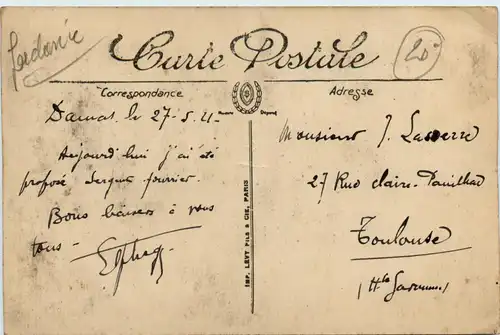 Jordanie
20
Carte Postale
Correspondance
Adresse
Damas le 27-5-21
Aujourd'hui j'ai été
proposé Sergent fourrier.
Bons baisers à vous
tous -
IMP. LEVY FILS & CIE, PARIS
Monsieur J. Lasserre
27 Rue Claire-Pauilhac
Toulouse
(Hte Garonne)